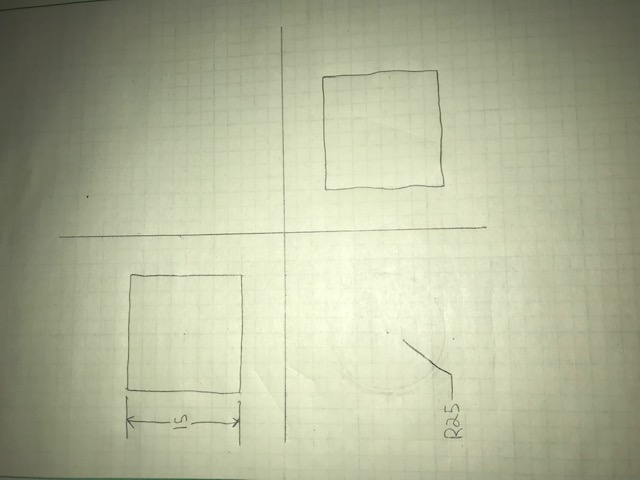 15
R25